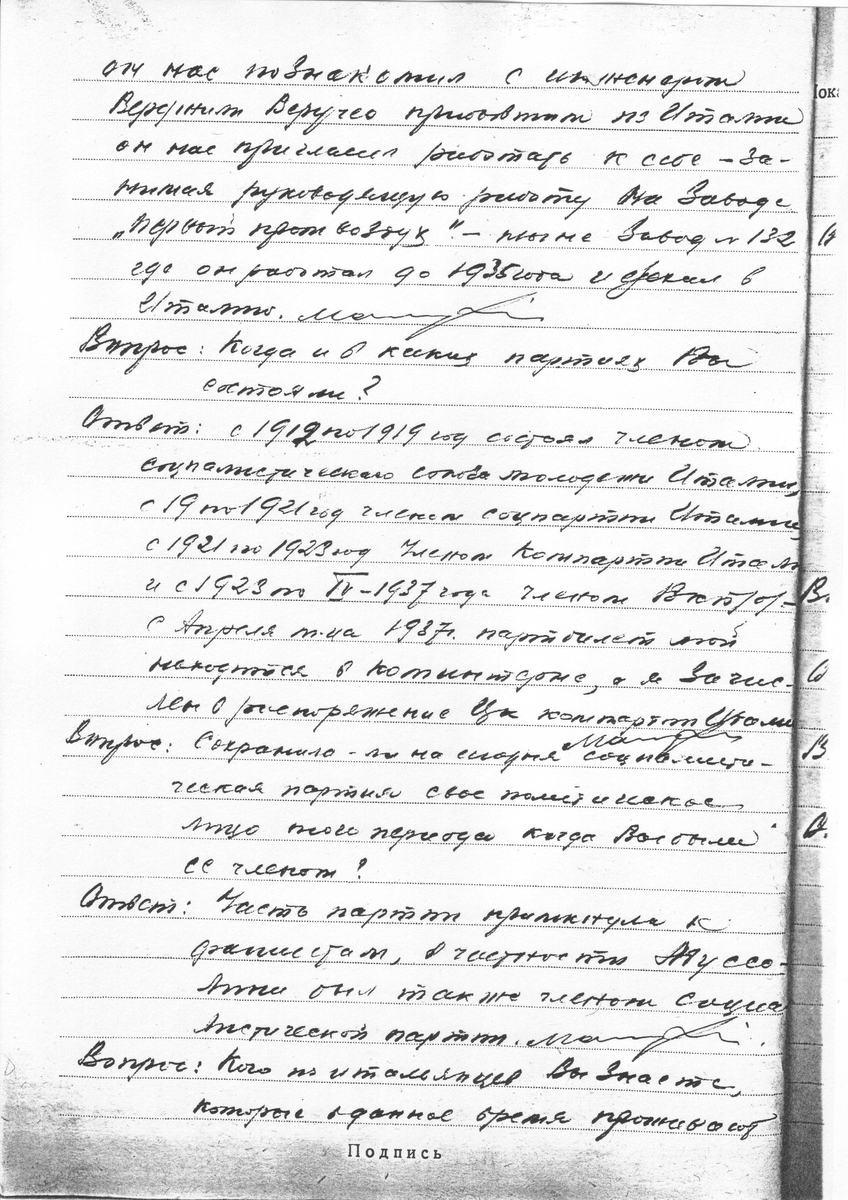 он нас познакомил с инженером
Верфнили Веручео прибывшим из Италии
он нас пригласил работать к себе – за-
нимая руководящую работу на Заводе
„первый пром воздух" – ныне Завод № 132
где он работал до 1935 года и уехал в
Италию.
Вопрос: Когда и в каких партиях Вы
состояли?
Ответ: с 1912 по 1919 год состоял членом
социалистического союза молодежи Италии,
с 19 по 1921 год членом соцпартии Италии,
с 1921 по 1923 год Членом Компартии Итал
и с 1923 по IV–1937 года членом ВКП(б)–
с Апреля м-ца 1937г. партбилет мой
находится в коминтерне, а я Зачис-
лен в распоряжение Цк компартии Итали
Вопрос: Сохранила-ли на сегодня социалисти-
ческая партия свое политическое
лицо того периода когда Вы были
ее членом?
Ответ: Часть партии примкнула к
фашистам, в частности Муссо-
лини был также членом социа
листической партии.
Вопрос: Кого из итальянцев Вы Знаете,
которые в данное время проживают
Подпись